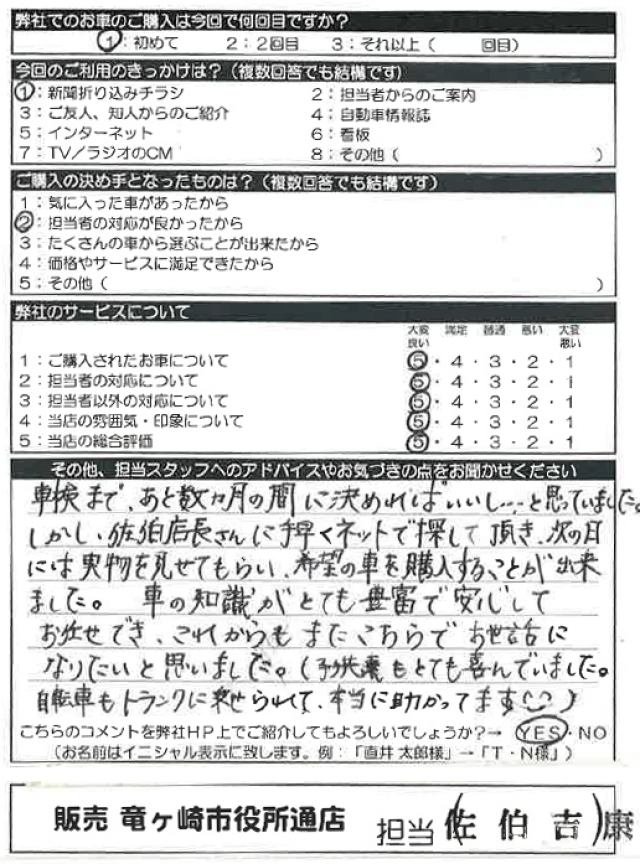 弊社でのお車のご購入は今回で何回目ですか？
1：初めて　2：2回目　3：それ以上（　回目）
今回のご利用のきっかけは？（複数回答でも結構です）
1：新聞折り込みチラシ　2：担当者からのご案内
3：ご友人、知人からのご紹介　4：自動車情報誌
5：インターネット　6：看板
7：TV／ラジオのCM　8：その他（　）
ご購入の決め手となったものは？（複数回答でも結構です）
1：気に入った車があったから
2：担当者の対応が良かったから
3：たくさんの車から選ぶことが出来たから
4：価格やサービスに満足できたから
5：その他（　）
弊社のサービスについて
大変良い　満足　普通　悪い　大変悪い
1：ご購入されたお車について　5・4・3・2・1
2：担当者の対応について　5・4・3・2・1
3：担当者以外の対応について　5・4・3・2・1
4：当店の雰囲気・印象について　5・4・3・2・1
5：当店の総合評価　5・4・3・2・1
その他、担当スタッフへのアドバイスやお気づきの点をお聞かせください
車検まで、あと数ヵ月の間に決めればいいし…と思っていました。
しかし、佐伯店長さんに手早くネットで探して頂き、次の日
には実物を見せてもらい、希望の車を購入することが出来
ました。車の知識がとても豊富で安心して
お任せでき、これからもまたこちらでお世話に
なりたいと思いました。（子供達もとても喜んでいました。
自転車もトランクに乗せられて、本当に助かってます）
こちらのコメントを弊社HP上でご紹介してもよろしいでしょうか？→ YES・NO
（お名前はイニシャル表示に致します。例：「直井 太郎様」→「T・N様」）
販売 竜ヶ崎市役所通店　担当（佐伯 吉）康